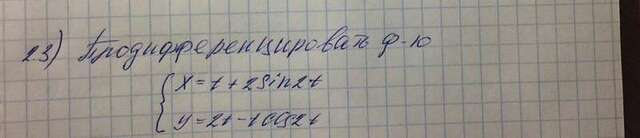 23) Продифференцировать ф-ю
{ x = t + 2sin2t
y = 2t - tcos2t